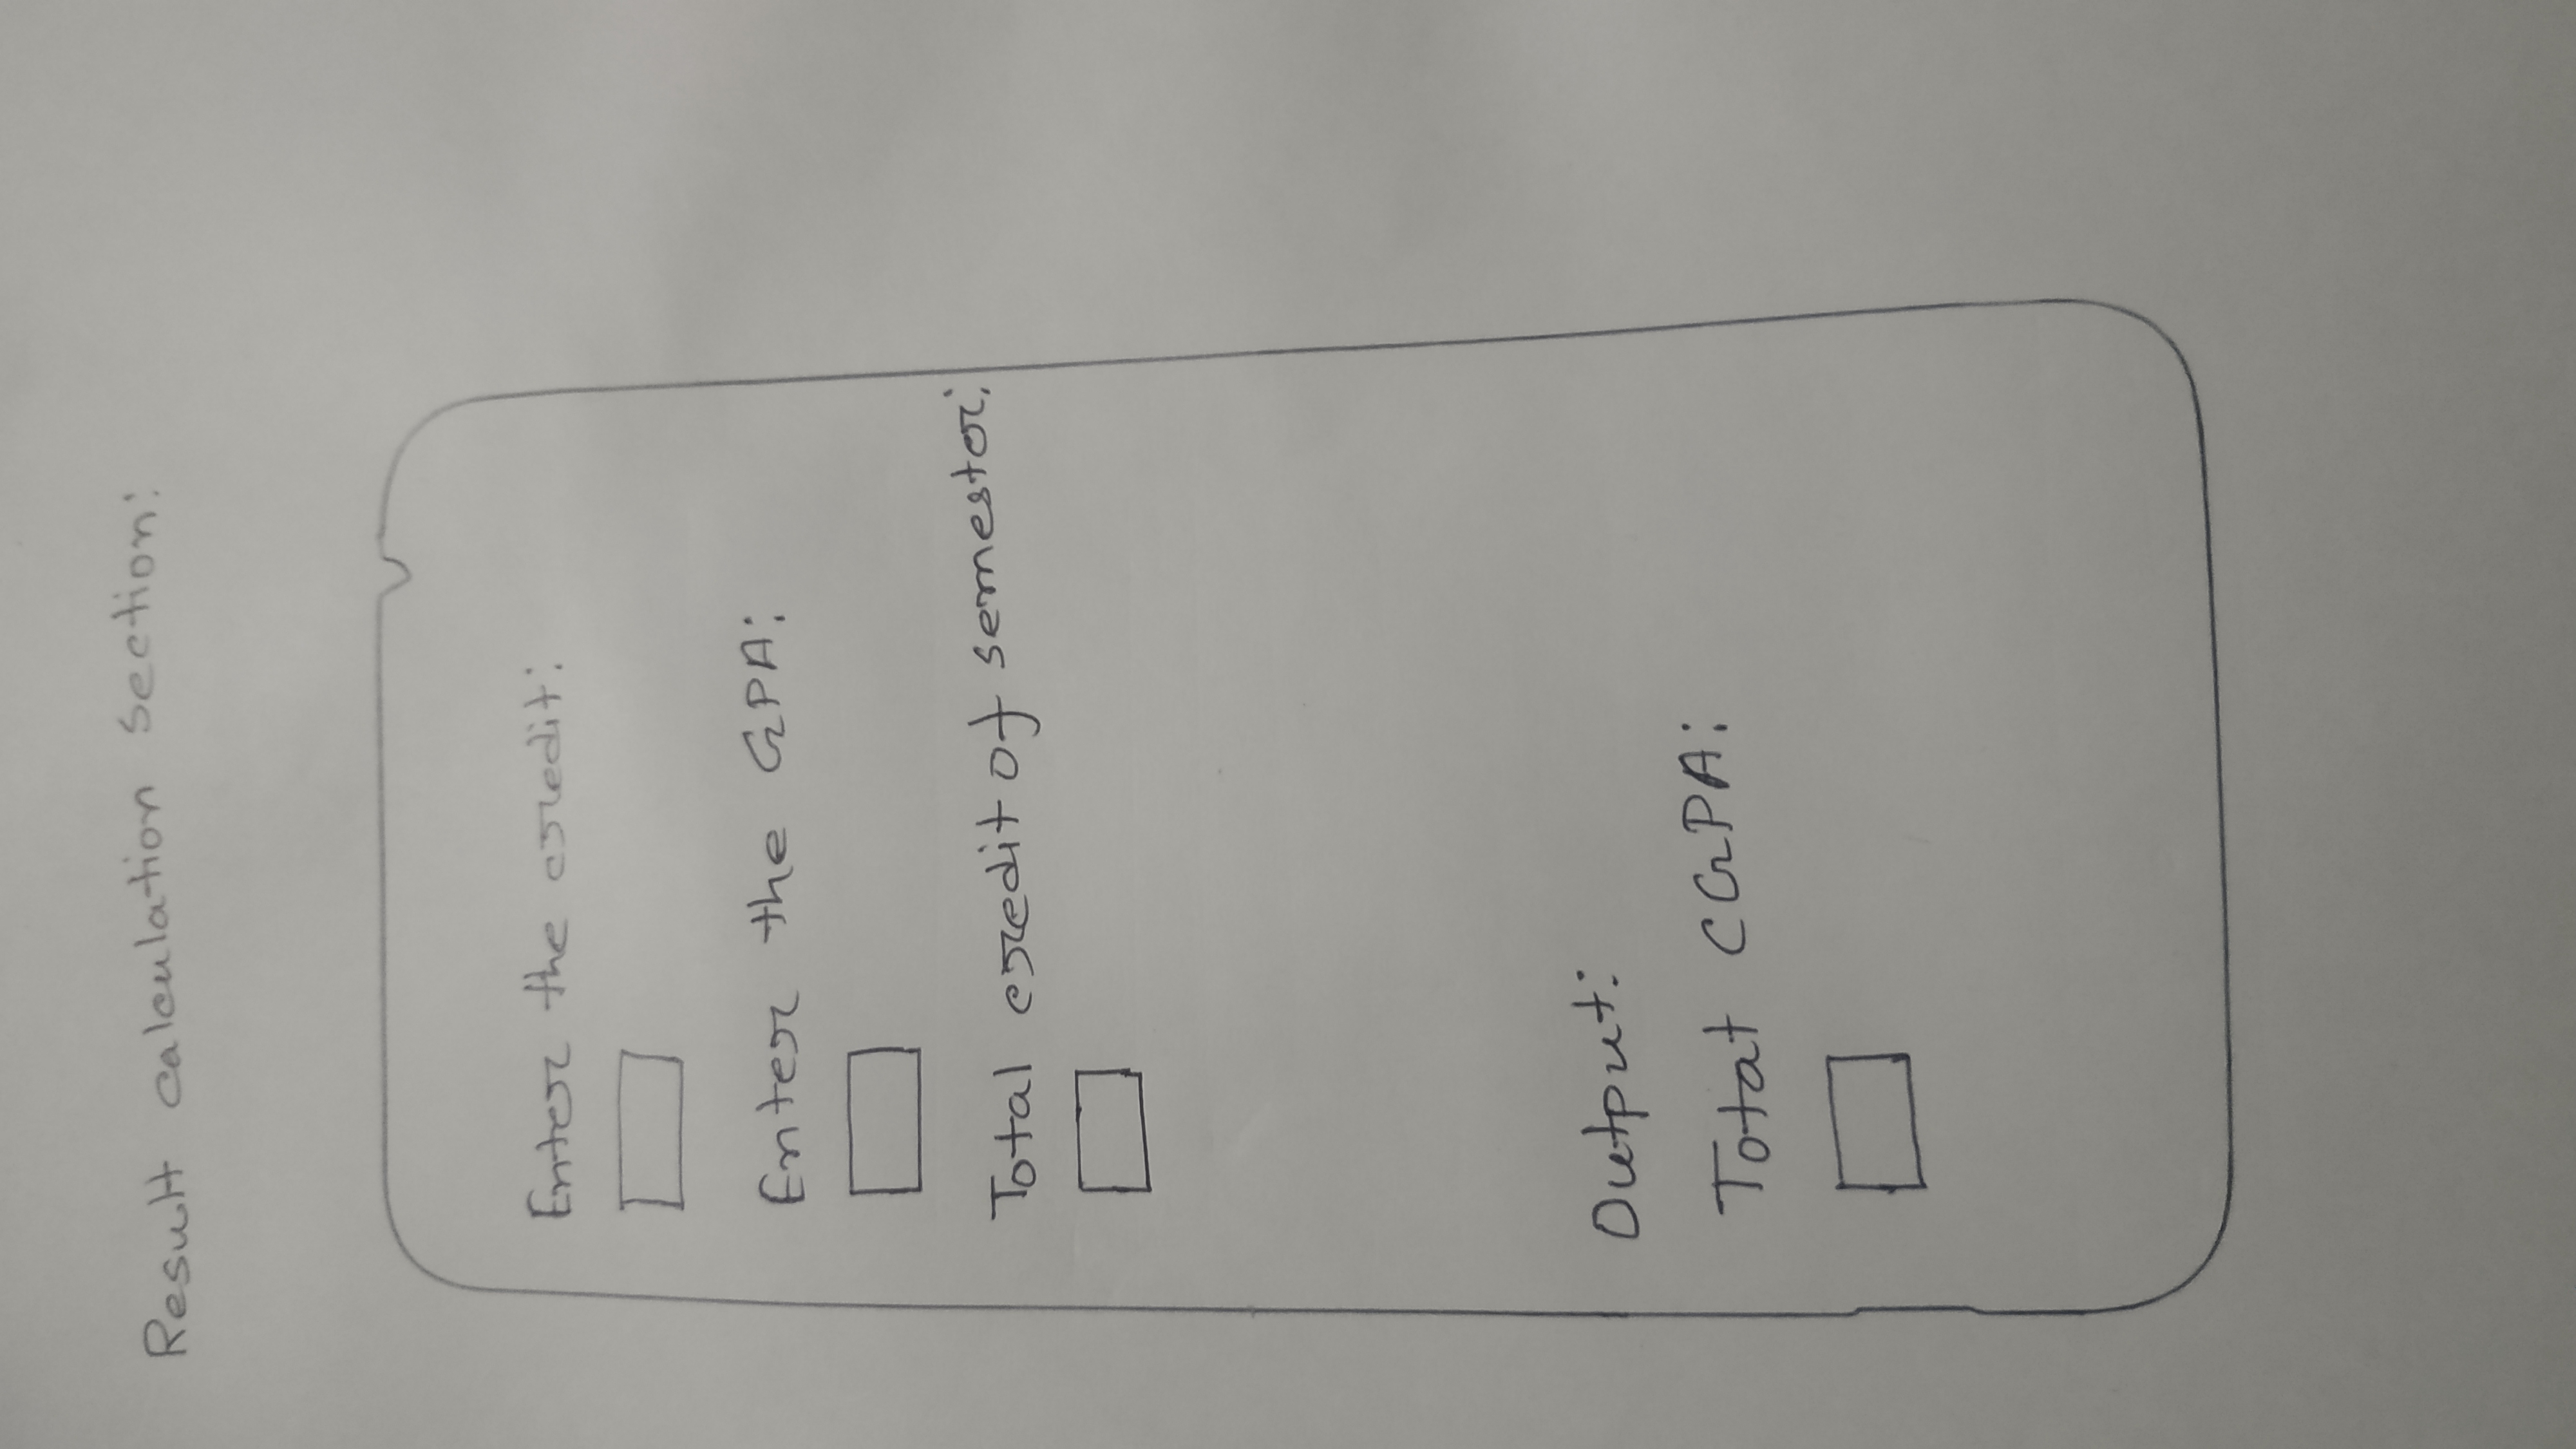 Result calculation section:
Enter the credit:
Enter the GPA:
Total credit of semester:
Output:
Total CGPA: